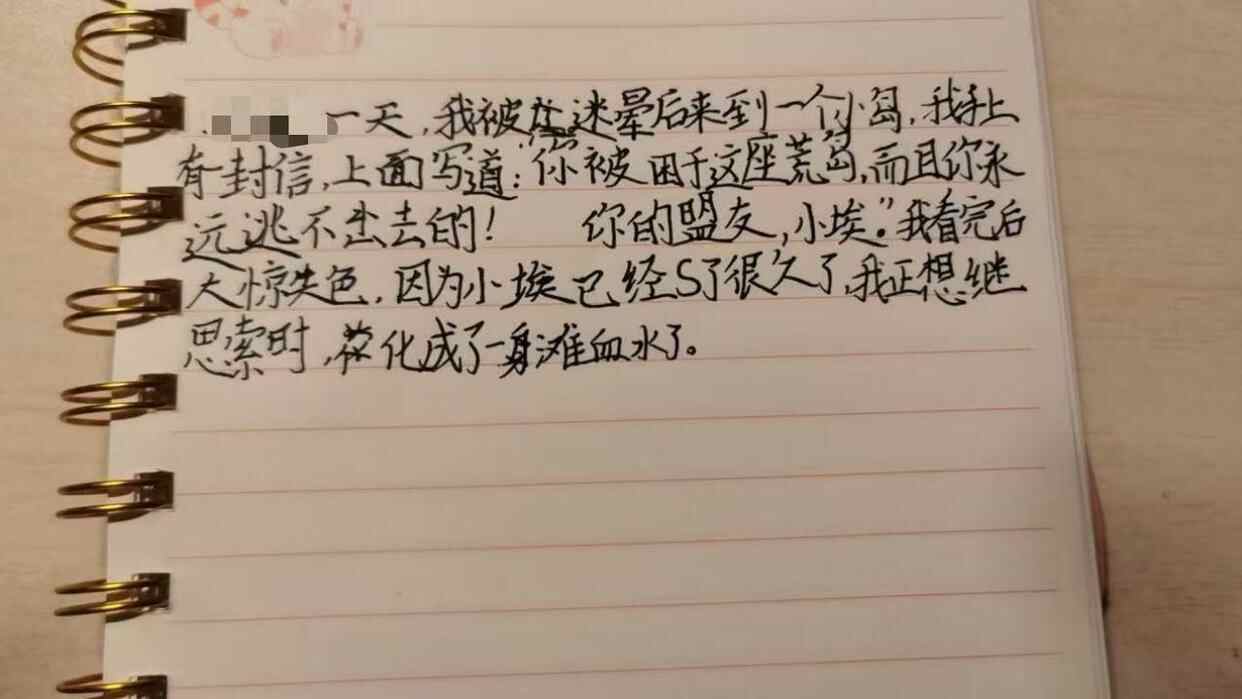 一天,我被迷晕后来到一个小岛,我手上
有封信,上面写道:“你被困于这座荒岛,而且你永
远逃不出去的! 你的盟友,小埃。”我看完后
大惊失色,因为小埃已经S了很久了,我正想继
思索时,化成了一身滩血水了。